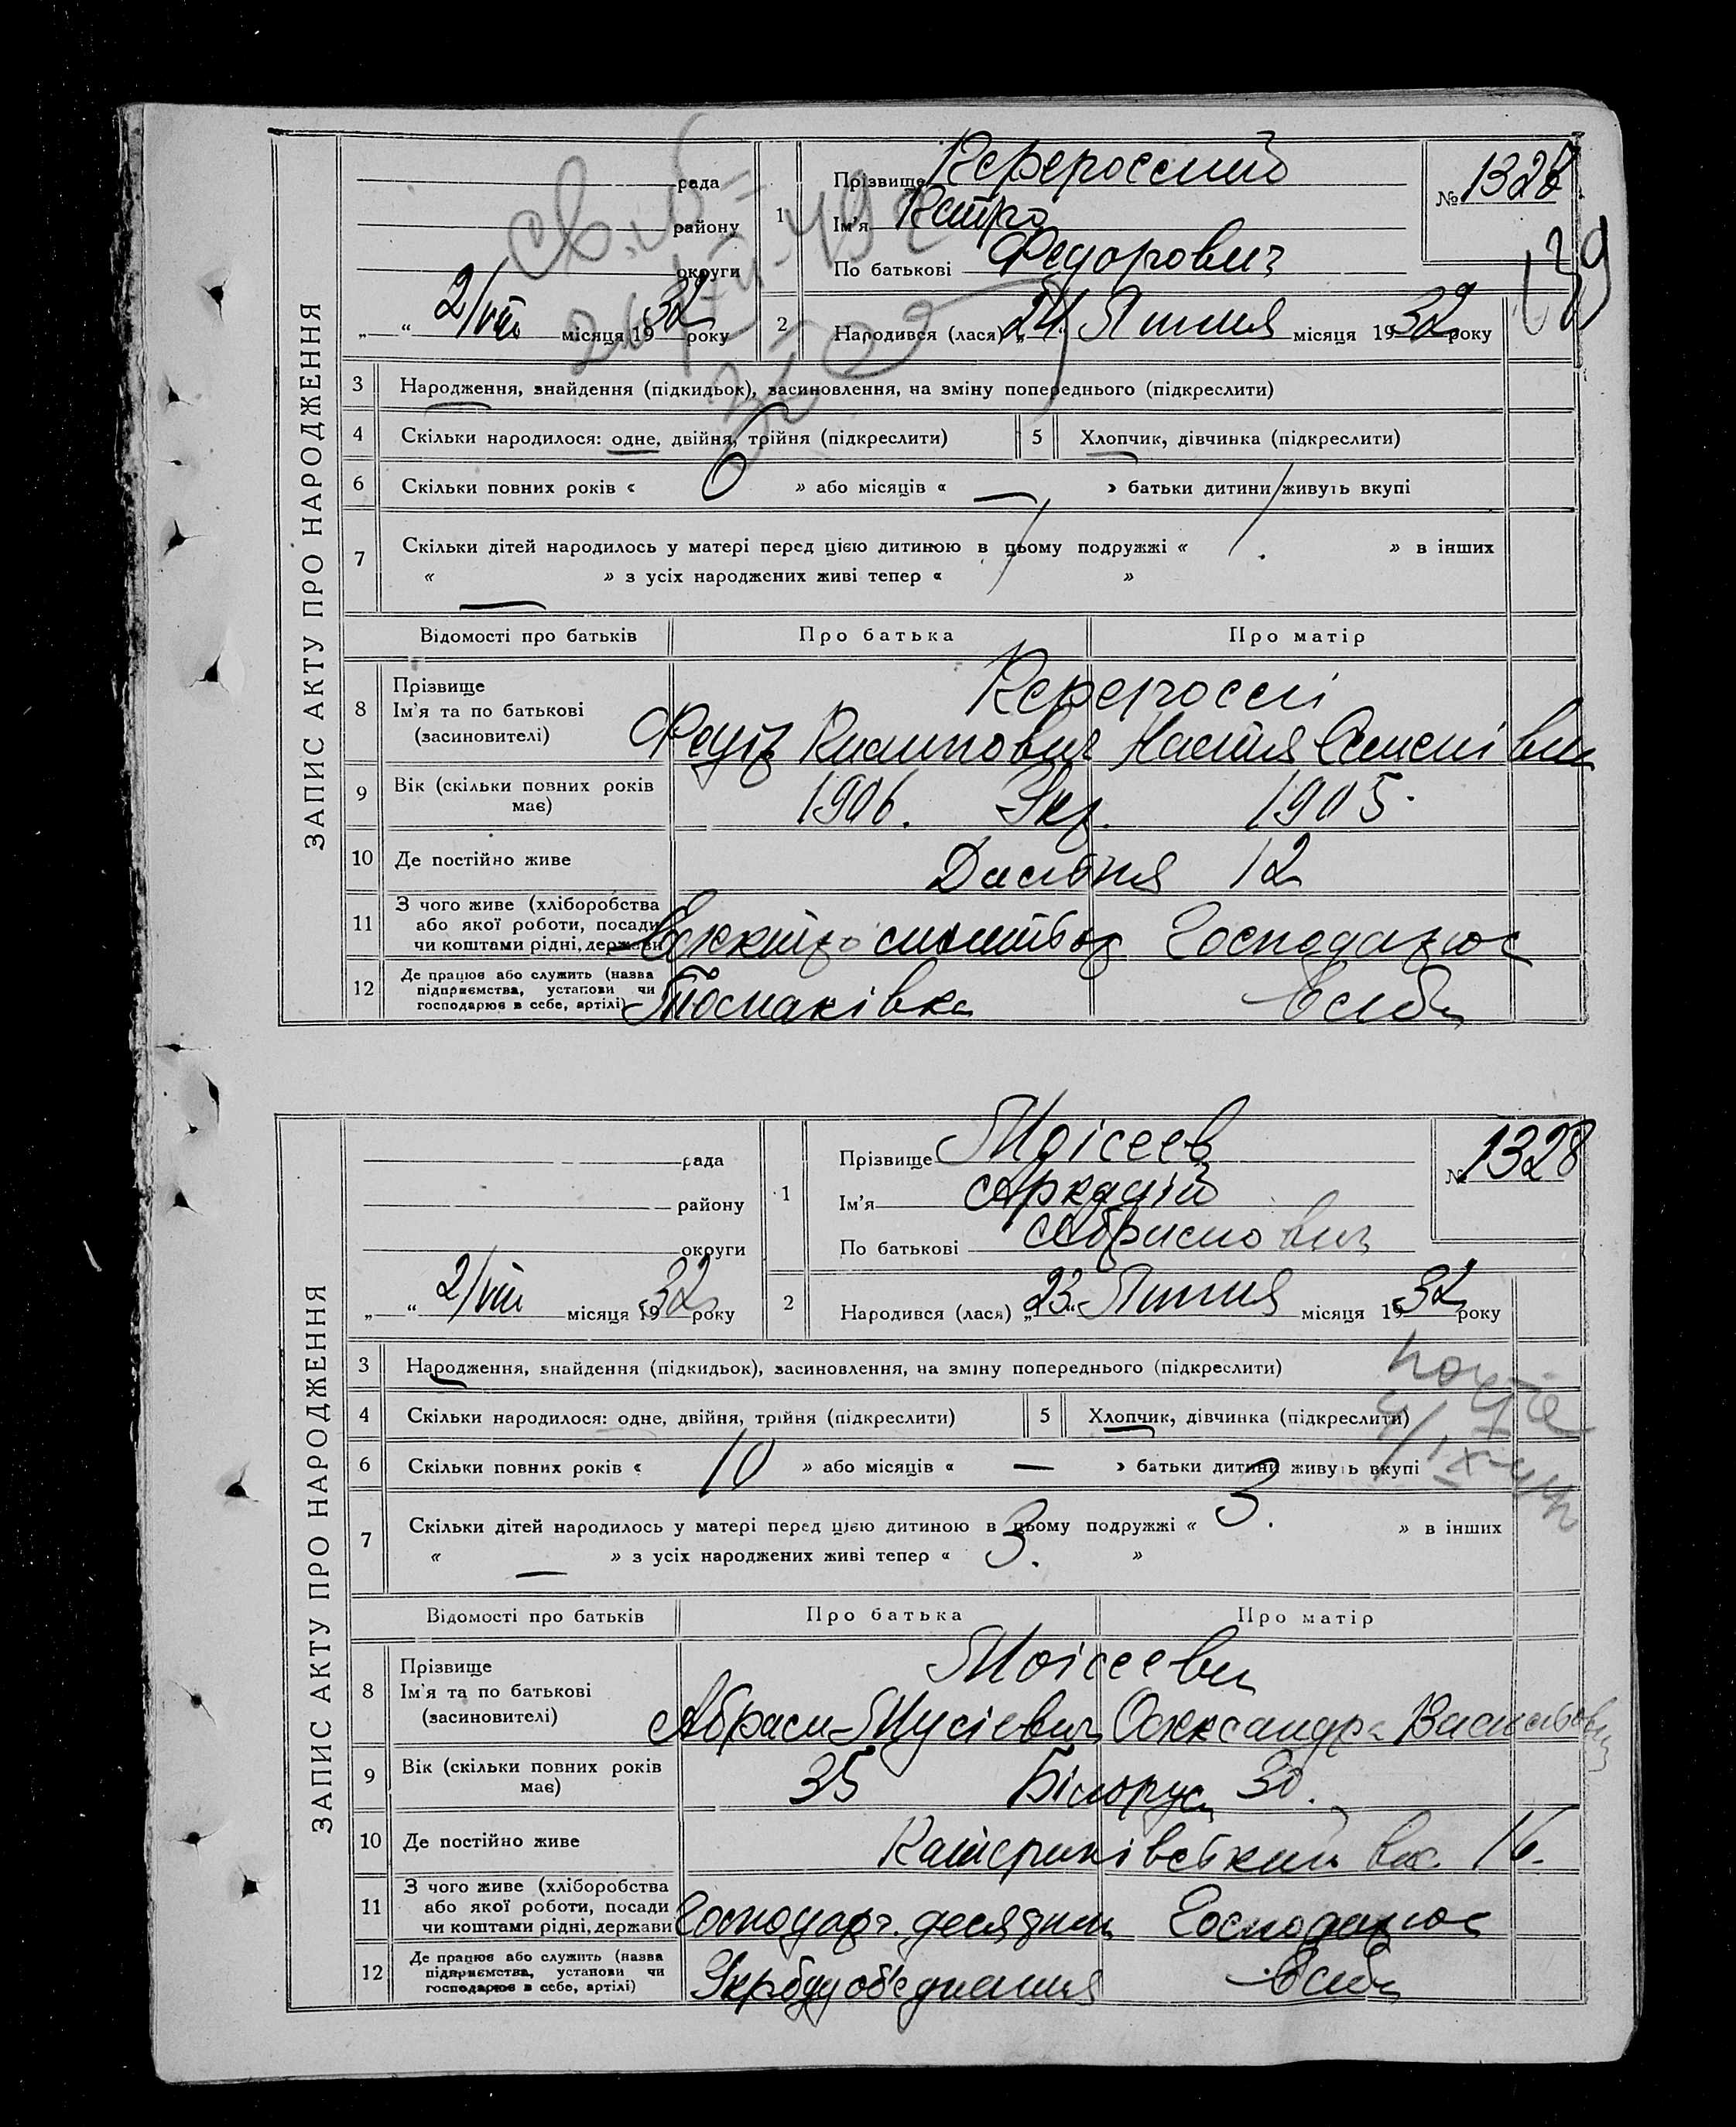 ЗАПИС АКТУ ПРО НАРОДЖЕННЯ
рада
району
округи
„ “ 2/VIII місяця 1932 року
1
Прізвище
Ім'я
По батькові Федорович
№ 132
139
2
Народився (лася) „24“ Липня місяця 1932 року
3 Народження, знайдення (підкидьок), засиновлення, на зміну попереднього (підкреслити)
4 Скільки народилося: одне, двійня, трійня (підкреслити)
5 Хлопчик, дівчинка (підкреслити)
6 Скільки повних років « 6 » або місяців « — » батьки дитини живуть вкупі
7 Скільки дітей народилось у матері перед цією дитиною в цьому подружжі « 1. » в інших
« — » з усіх народжених живі тепер « 1 »
Відомості про батьків Про батька Про матір
8 Прізвище
Ім'я та по батькові
(засиновителі)
Настя Семенівна
9 Вік (скільки повних років має) 1906. Укр. 1905.
10 Де постійно живе 12
11 З чого живе (хліборобства або якої роботи, посади чи коштами рідні, держави Господарює
12 Де працює або служить (назва підприємства, установи чи господарює в себе, артілі) В себе
ЗАПИС АКТУ ПРО НАРОДЖЕННЯ
рада
району
округи
„ “ 2/VIII місяця 1932 року
1
Прізвище Моісеев
Ім'я Аркадій
По батькові Абрамович
№ 1328
2
Народився (лася) „23“ Липня місяця 1932 року
3 Народження, знайдення (підкидьок), засиновлення, на зміну попереднього (підкреслити)
4 Скільки народилося: одне, двійня, трійня (підкреслити)
5 Хлопчик, дівчинка (підкреслити)
6 Скільки повних років « 10 » або місяців « — » батьки дитини живуть вкупі
7 Скільки дітей народилось у матері перед цією дитиною в цьому подружжі « 3. » в інших
« — » з усіх народжених живі тепер « 3. »
Відомості про батьків Про батька Про матір
8 Прізвище
Ім'я та по батькові
(засиновителі)
Моісееви
Абрам Мусієвич Олександра Васильовна
9 Вік (скільки повних років має) 35 Білоруси 30.
10 Де постійно живе 16.
11 З чого живе (хліборобства або якої роботи, посади чи коштами рідні, держави Господарч. десятник Господарює
12 Де працює або служить (назва підприємства, установи чи господарює в себе, артілі) Укрбудоб'єднання В себе